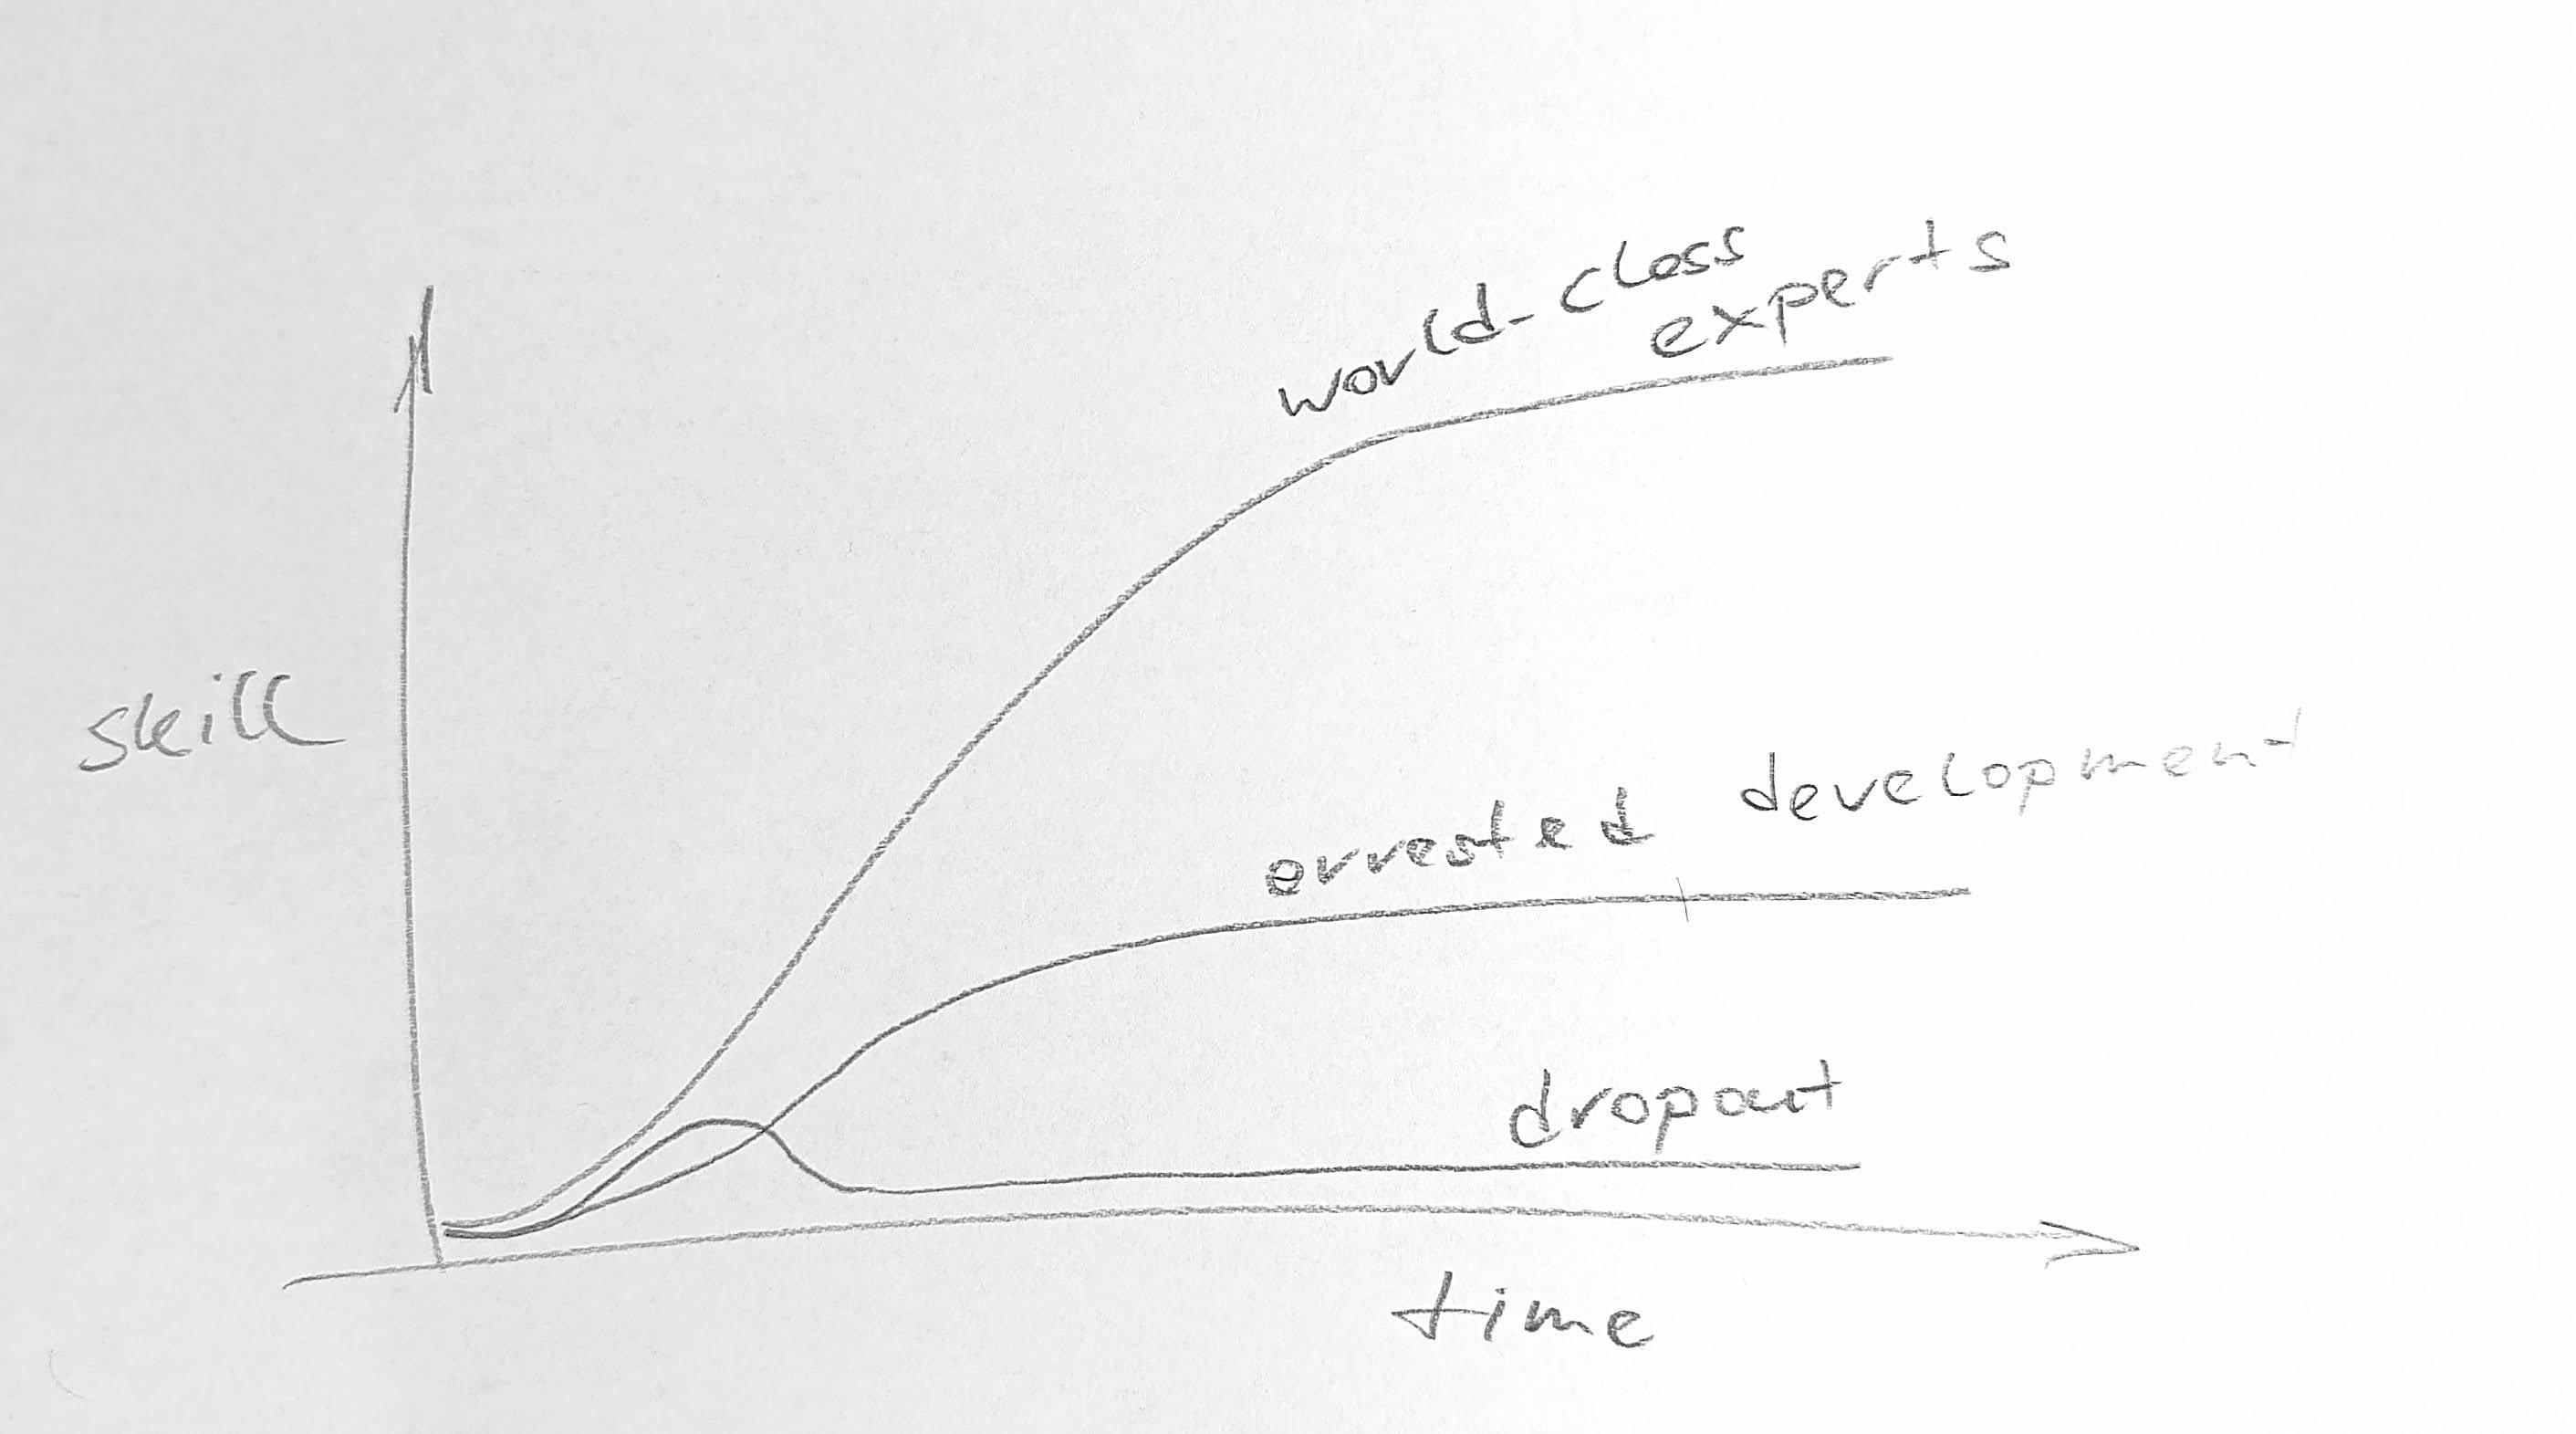 world-class
experts
skill
arrested development
dropout
time